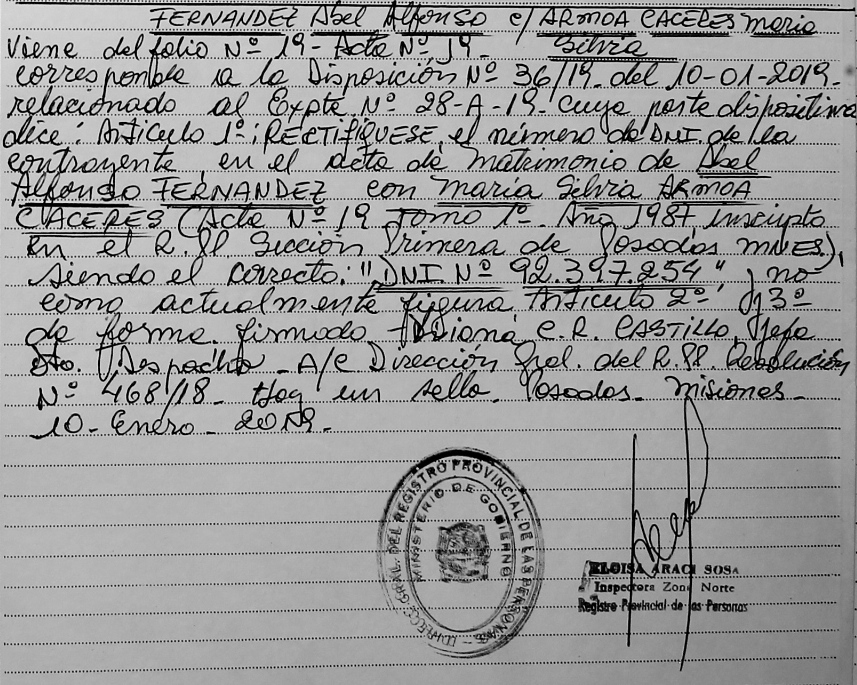 FERNANDEZ Abel Alfonso c/ ARMOA CACERES Maria
Silvia
Viene del folio Nº 19- Acta Nº 19-
corresponde a la Disposición Nº 36/19- del 10-01-2019-
relacionado al Expte. Nº 28-A-19- cuya parte dispositiva
dice: Artículo 1º: RECTIFIQUESE, el número de DNI. de la
contrayente, en el acta de Matrimonio de Abel
Alfonso FERNANDEZ con Maria Silvia ARMOA
CACERES (Acta Nº 19 Tomo 1º- Año 1987, inscripto
en el R.PP Sección Primera de Posadas MNES),
siendo el correcto: "DNI. Nº 92.397.254", y no
como actualmente figura. Artículo 2º y 3º
de forma. firmado C.R. CASTILLO, Jefa
Dto. Despacho - A/C Dirección Gral. del R.PP Resolución
Nº 468/18- Hay un sello. Posadas- Misiones-
10- Enero- 2019-
DIRECC. GRAL. DEL REGISTRO PROVINCIAL DE LAS PERSONAS
MINISTERIO DE GOBIERNO
ELOISA ARACI SOSA
Inspectora Zona Norte
Registro Provincial de las Personas